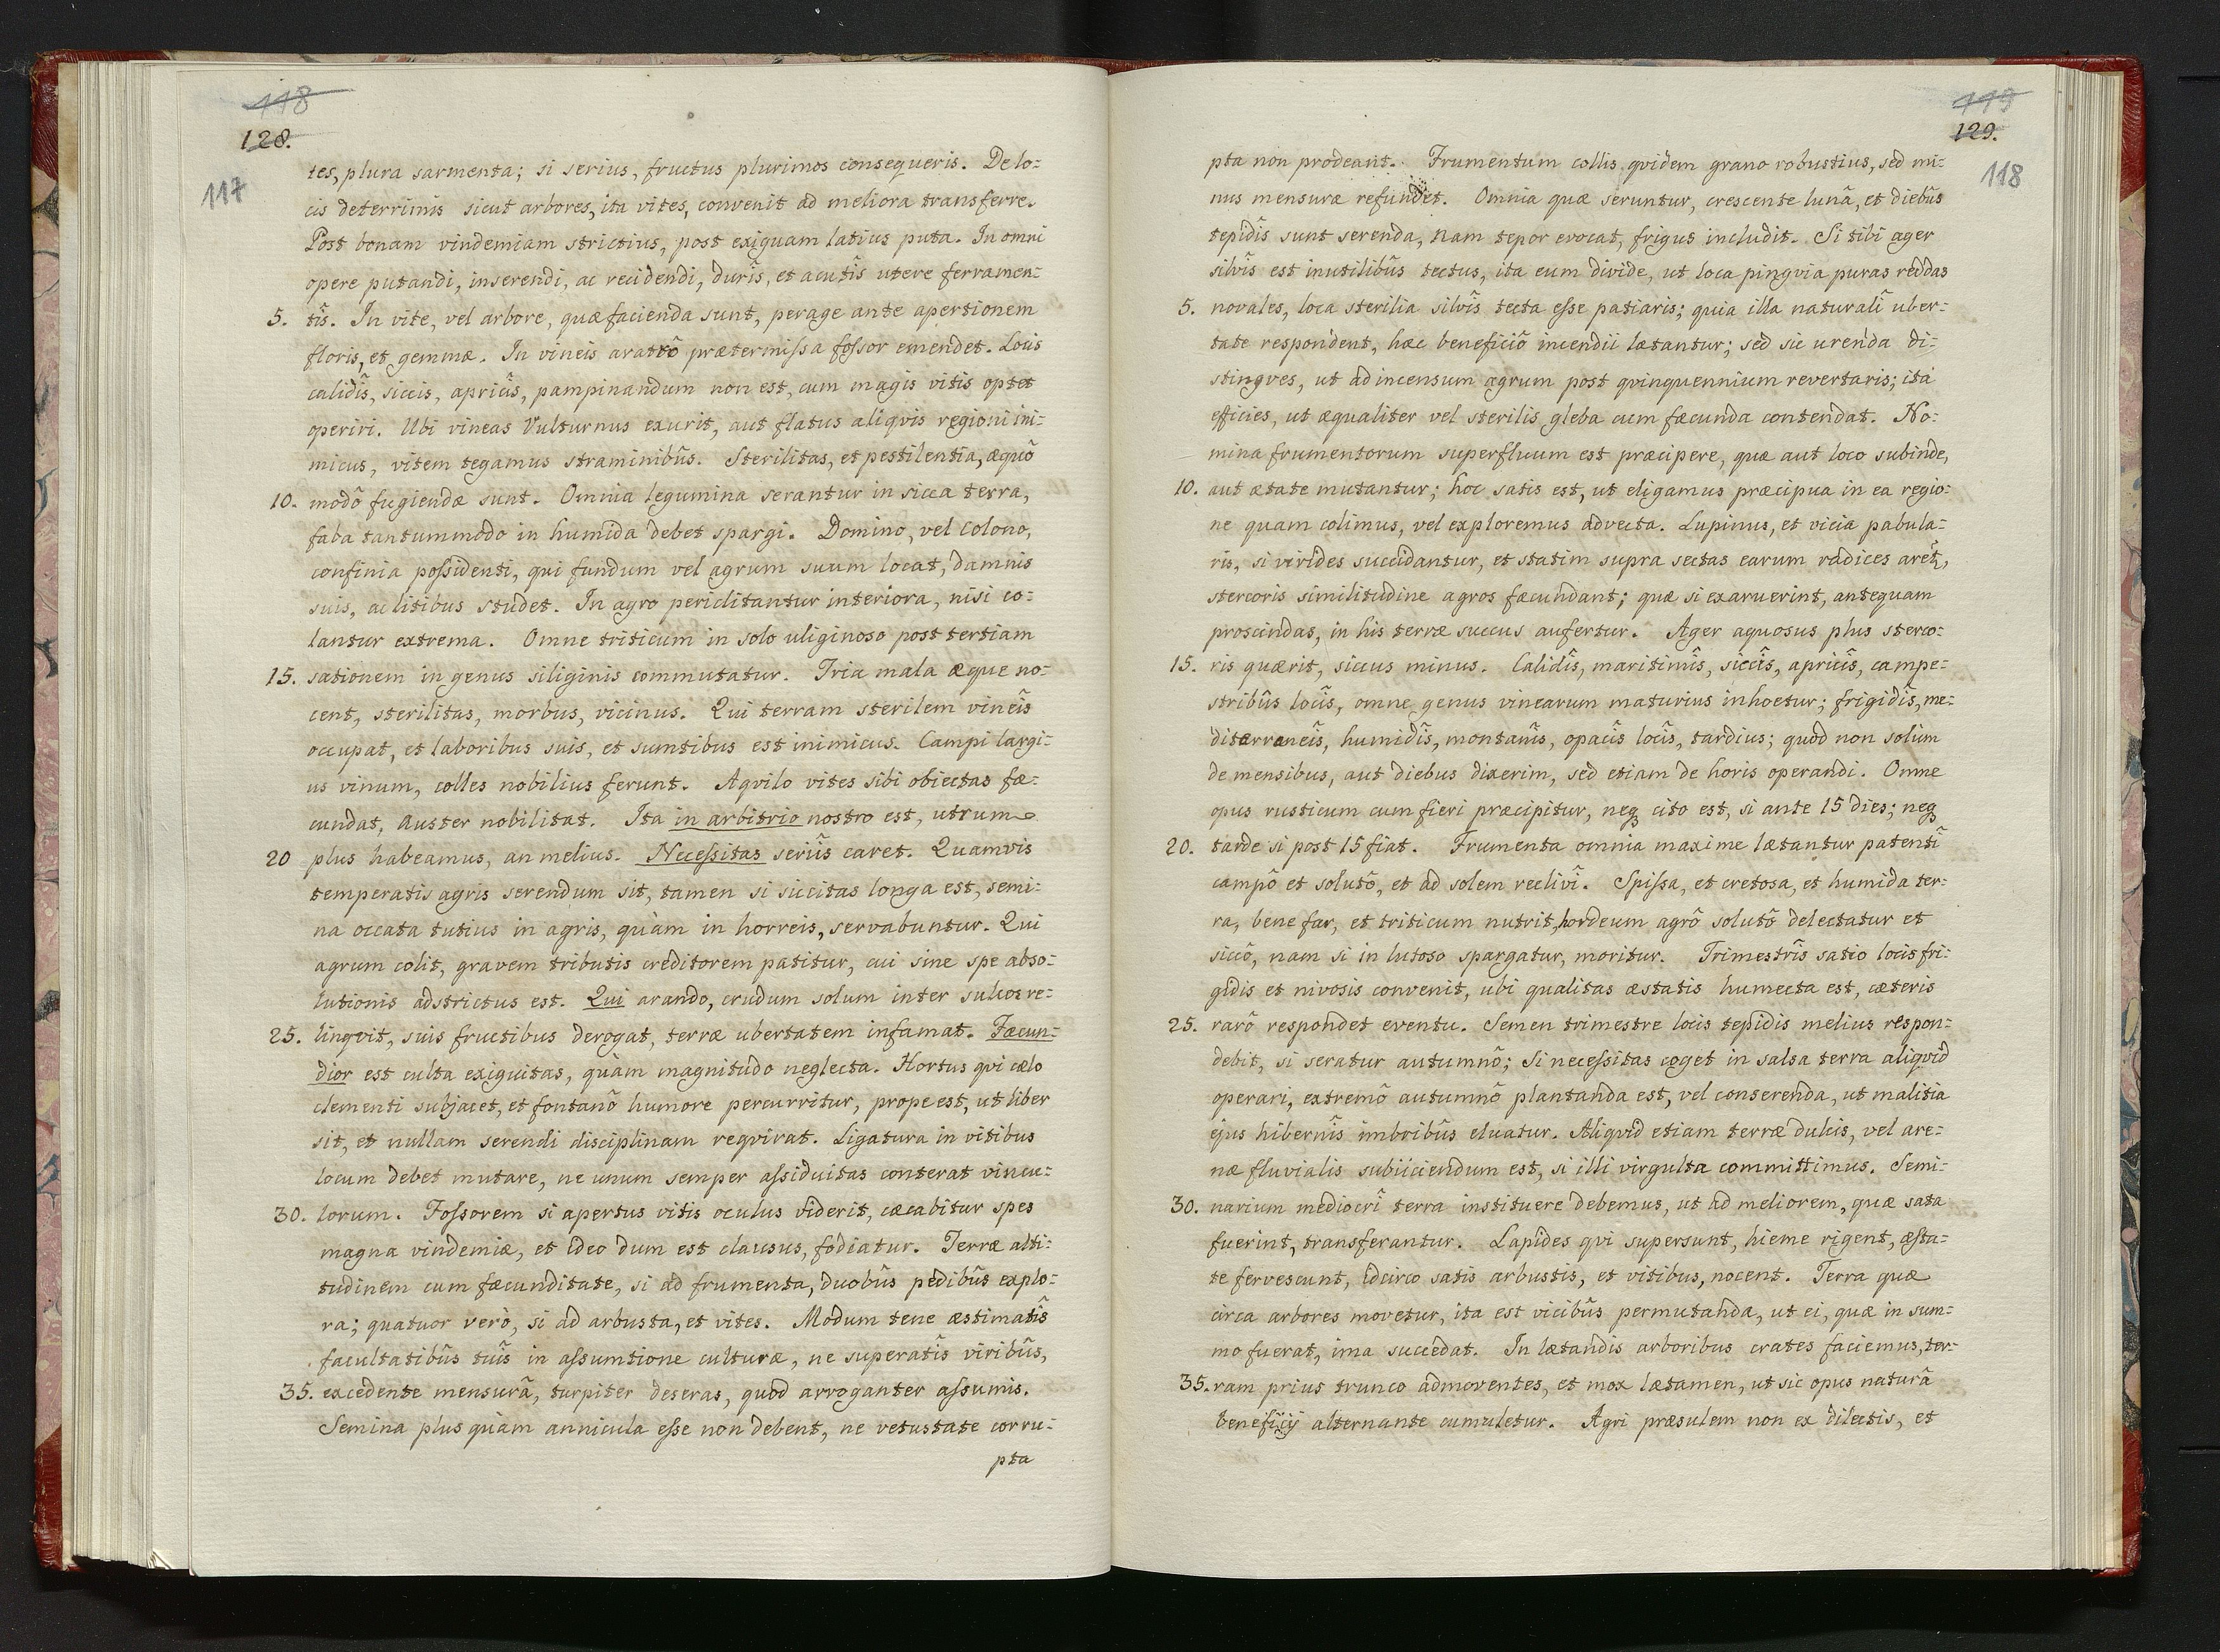 118
128.
117
tes, plura sarmenta; si serius, fructus plurimos consequeris. De lo:
cis deterrimis sicut arbores, ita vites, convenit ad meliora transferre.
Post bonam vindemiam strictius, post exiguam latius puta. In omni
opere putandi, inserendi, ac recidendi, durîs, et acutîs utere ferramen:
5. tîs. In vite, vel arbore, quæ facienda sunt, perage ante apertionem
floris, et gemmæ. In vineis aratrô prætermissa fossor emendet. Locis
calidîs, siccis, apricîs, pampinandum non est, cum magis vitis optet
operiri. Ubi vineas Vulturnus exurit, aut flatus aliqvis regioni ini:
micus, vitem tegamus straminibûs. Sterilitas, et pestilentia, æquô
10. modô fugiendæ sunt. Omnia legumina serantur in sicca terra,
faba tantummodo in humida debet spargi. Domino, vel colono,
confinia possidenti, qui fundum vel agrum suum locat, damnis
suis, ac litibus studet. In agro periclitantur interiora, nisi co:
lantur extrema. Omne triticum in solo uliginoso post tertiam
15. sationem in genus siliginis commutatur. Tria mala æque no:
cent, sterilitas, morbus, vicinus. Qui terram sterilem vineîs
occupat, et laboribus suis, et sumtibus est inimicus. Campi largi:
us vinum, colles nobilius ferunt. Aqvilo vites sibi obiectas fæ:
cundat, Auster nobilitat. Ita in arbitrio nostro est, utrum
20 plus habeamus, an melius. Necessitas seriîs caret. Quamvis
temperatis agris serendum sit, tamen si siccitas longa est, semi:
na occata tutius in agris, quàm in horreis, servabuntur. Qui
agrum colit, gravem tributis creditorem patitur, cui sine spe abso:
lutionis adstrictus est. Qui arando, crudum solum inter sulcos re:
25. linqvit, suis fructibus derogat, terræ ubertatem infamat. Fæcun:
dior est culta exiguitas, quàm magnitudo neglecta. Hortus qvi cælo
clementi subjacet, et fontanô humore percurritur, prope est, ut liber
sit, et nullam serendi disciplinam reqvirat. Ligatura in vitibus
locum debet mutare, ne unum semper assiduitas conterat vincu:
30. lorum. Fossorem si apertus vitis oculus viderit, cæcabitur spes
magna vindemiæ, et ideo dum est clausus, fodiatur. Terræ alti:
tudinem cum fæcunditate, si ad frumenta, duobûs pedibûs explo:
ra; quatuor verò, si ad arbusta, et vites. Modum tene æstimatîs
facultatibûs tuîs in assumtione culturæ, ne superatîs viribûs,
35. excedente mensurâ, turpiter deseras, quod arroganter assumis.
Semina plus quàm annicula esse non debent, ne vetustate corru:
pta
119
129.
118
pta non prodeant. Frumentum collis qvidem grano robustius, sed mi:
nus mensuræ refundet. Omnia quæ seruntur, crescente lunâ, et diebûs
tepidîs sunt serenda, nam tepor evocat, frigus includit. Si tibi ager
silvîs est inutilibûs tectus, ita eum divide, ut loca pingvia puras reddas
5. novales, loca sterilia silvîs tecta esse patiaris; quia illa naturalî uber:
tate respondent, hæc beneficiô incendii lætantur; sed sic urenda di:
stingves, ut ad incensum agrum post qvinquennium revertaris; ita
efficies, ut æqualiter vel sterilis gleba cum fæcunda contendat. No:
mina frumentorum superfluum est præcipere, quæ aut loco subinde,
10. aut ætate mutantur; hoc satis est, ut eligamus præcipua in ea regio:
ne quam colimus, vel exploremus advecta. Lupinus, et vicia pabula:
ris, si virides succidantur, et statim supra sectas earum radices aret,
stercoris similitudine agros fæcundant; quæ si exaruerint, antequam
proscindas, in his terræ succus aufertur. Ager aquosus plus sterco:
15. ris quærit, siccus minus. Calidîs, maritimîs, siccîs, apricîs, campe:
stribûs locîs, omne genus vinearum maturius inhoetur; frigidîs, me:
diterraneîs, humidîs, montanîs, opacîs locîs, tardius; quod non solùm
de mensibus, aut diebus dixerim, sed etiam de horis operandi. Omne
opus rusticum cum fieri præcipitur, neq cito est, si ante 15 dies; neq
20. tarde si post 15 fiat. Frumenta omnia maxime lætantur patentî
campô et solutô, et ad solem reclivî. Spissa, et cretosa, et humida ter:
ra, bene far, et triticum nutrit, hordeum agrô solutô delectatur et
siccô, nam si in lutoso spargatur, moritur. Trimestrîs satio locis fri:
gidis et nivosis convenit, ubi qualitas æstatis humecta est, cæteris
25. rarô respondet eventu. Semen trimestre locis tepidis melius respon:
debit, si seratur autumnô; Si necessitas coget in salsa terra aliqvid
operari, extremô autumnô plantanda est, vel conserenda, ut malitia
ejus hibernîs imbribûs eluatur. Aliqvid etiam terræ dulcis, vel are:
næ fluvialis subiiciendum est, si illi virgulta committimus. Semi:
30. narium mediocrî terra instituere debemus, ut ad meliorem, quæ sata
fuerint, transferantur. Lapides qvi supersunt, hieme rigent, æsta:
te fervescunt, idcirco satis arbustis, et vitibus, nocent. Terra quæ
circa arbores movetur, ita est vicibûs permutanda, ut ei, quæ in sum:
mo fuerat, ima succedat. In lætandis arboribus crates faciemus, ter:
35. ram prius trunco admoventes, et mox lætamen, ut sic opus naturâ
beneficij alternante cumuletur. Agri præsulem non ex dilectis, et